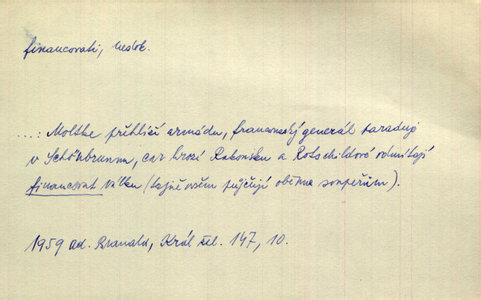 financovati, nedok.
...: Moltke přehlíží armádu, francouzský generál
v Schönbrunnu, car hrozí Rakousku a Rotschildové odmítají
financovat válku (tajně ovšem půjčují oběma soupeřům).
1959 ad. Branald, Král žel. 147, 10.